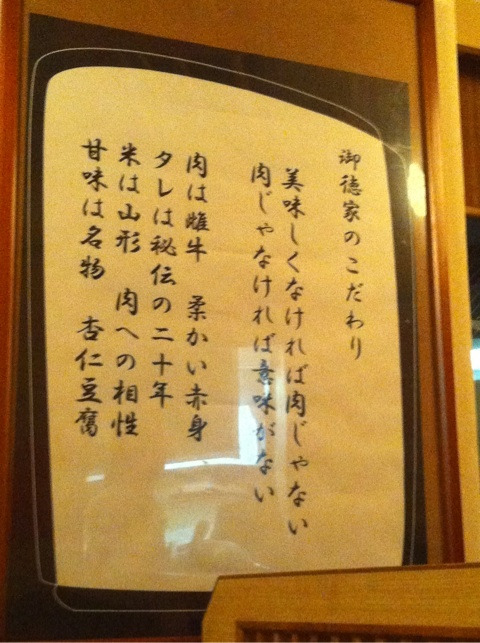 御徳家のこだわり
美味しくなければ肉じゃない
肉じゃなければ意味がない
肉は雌牛　柔かい赤身
タレは秘伝の二十年
米は山形　肉への相性
甘味は名物　杏仁豆腐